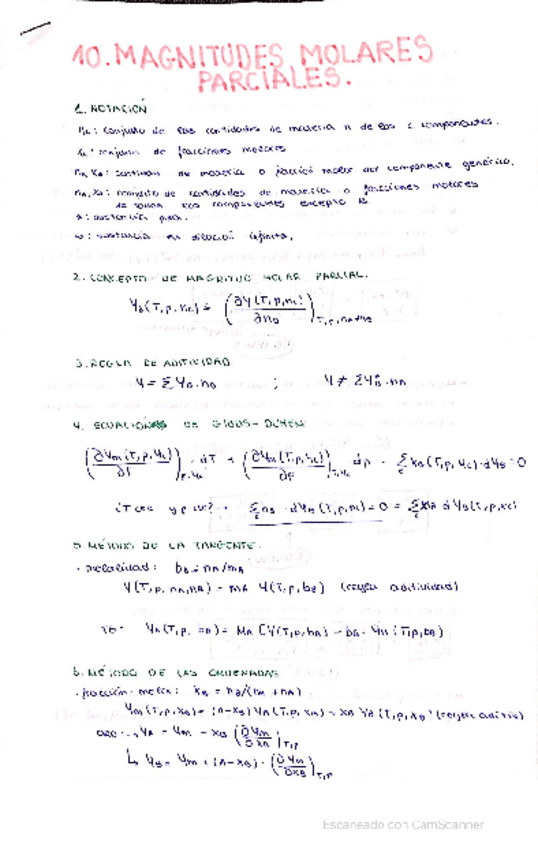 10. MAGNITUDES MOLARES
PARCIALES.
1. NOTACIÓN
nc: conjunto de las cantidades de materia n de los c componentes.
xc: conjunto de fracciones molares
nB, xB: cantidad de materia o fracción molar del componente genérico.
nA, xA: conjunto de cantidades de materia o fracciones molares
de todos los componentes excepto B.
*: sustancia pura.
∞: sustancia en dilución infinita.
2. CONCEPTO DE MAGNITUD MOLAR PARCIAL.
YB(T,p,nc) = (∂Y(T,p,nc)/∂nB)T,p,nA≠nB
3. REGLA DE ADITIVIDAD
Y = Σ YB·nB ; Y ≠ Σ Y*B·nB
4. ECUACIONES DE GIBBS-DUHEM
(∂Ym(T,p,xc)/∂T)p,xc · dT + (∂Ym(T,p,xc)/∂p)T,xc dp - Σ xB(T,p,xc)·dYB = 0
¿T cte y p cte? → Σ nB · dYB(T,p,nc) = 0 = Σ xB dYB(T,p,xc)
5. MÉTODO DE LA TANGENTE.
· molalidad: bB = nB/mA
Y(T,p,nA,nB) = mA Y(T,p,bB) (regla aditividad)
YA(T,p,bB) = MA [Y(T,p,bB) - bB · YB(T,p,bB)]
6. MÉTODO DE LAS ORDENADAS
· fracción molar: xB = nB/(nB + nA)
Ym(T,p,xB) = (1-xB) YA(T,p,xB) + xB YB(T,p,xB) (regla aditiv)
YA = Ym - xB (∂Ym/∂xB)T,p
↳ YB = Ym + (1-xB) · (∂Ym/∂xB)T,p
Escaneado con CamScanner